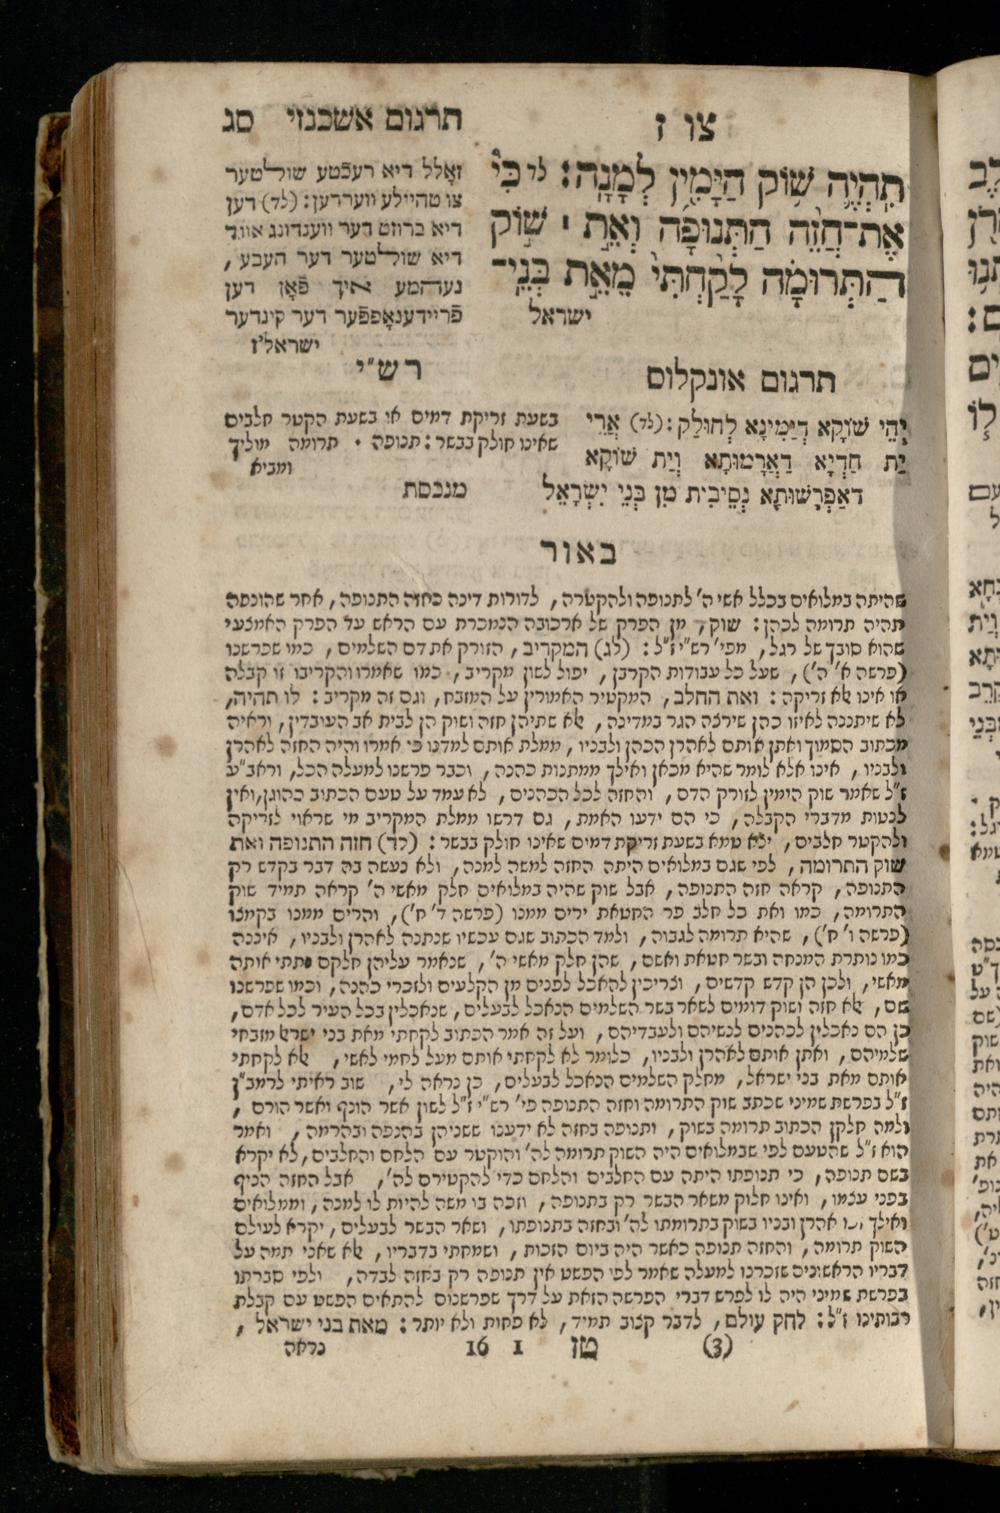 צו ז
תרגום אשכנזי סג
תִהְיֶה שׁוֹק הַיָּמִין לְמָנָה: לד כִּי
אֶת־חֲזֵה הַתְּנוּפָה וְאֵת ׀ שׁוֹק
הַתְּרוּמָה לָקַחְתִּי מֵאֵת בְּנֵי־
ישראל
זאָלל דיא רעכטע שולטער
צו טהיילע ווערדען: (לד) דען
דיא ברוסט דער ווענדונג אונד
דיא שולטער דער העבע,
נעהמע איך פֿאָן דען
פֿריידענאָפּפֿער דער קינדער
ישראל'ז
תרגום אונקלוס
יְהֵי שׁוֹקָא דְיַמִּינָא לְחוּלָק: (לד) אֲרֵי
יַת חַדְיָא דַאֲרָמוּתָא וְיַת שׁוֹקָא
דאַפְרָשׁוּתָא נְסֵיבִית מִן בְּנֵי יִשְׂרָאֵל
רש"י
בשעת זריקת דמים או בשעת הקטר חלבים
שאינו חולק בבשר: תנופה · תרומה מוליך
ומביא
מנכסת
באור
שהיתה במלואים בכלל אשי ה' לתנופה ולהקטרה, לדורות דינה כחזה התנופה, אחר שהונפה
תהיה תרומה לכהן: שוק, מן הפרק של ארכובה הנמכרת עם הראש עד הפרק האמצעי
שהוא סובך של רגל, מפי' רש"י ז"ל: (לג) המקריב, הזורק את דם השלמים, כמו שפרשנו
(פרשה א' ה'), שעל כל עבודות הקרבן, יפול לשון מקריב, כמו שאמרו והקריבו זו קבלה
או אינו אלא זריקה: ואת החלב, המקטיר האמורין על המזבח, וגם זה מקריב: לו תהיה,
לא שיתננה לאיזו כהן שירצה הגר במדינה, אלא שתיהן חזה ושוק הן לבית אב העובדין, וראיה
מכתוב הסמוך ואתן אותם לאהרן הכהן ולבניו, ממלת אותם למדנו כי אמרו והיה החזה לאהרן
ולבניו, אינו אלא לומר שהיא מכאן ואילך ממתנות כהנה, וכבר פרשנו למעלה הכל, וראב"ע
ז"ל שאמר שוק הימין לזורק הדם, והחזה לכל הכהנים, לא עמד על טעם הכתוב כהוגן, ואין
לנטות מדברי הקבלה, כי הם ידעו האמת, גם דרשו ממלת המקריב מי שראוי לזריקה
ולהקטר חלבים, יצא טמא בשעת זריקת דמים שאינו חולק בבשר: (לד) חזה התנופה ואת
שוק התרומה, לפי שגם במלואים היתה החזה למשה למנה, ולא נעשה בה דבר בקדש רק
התנופה, קראה חזה התנופה, אבל שוק שהיה במלואים חלק מאשי ה' קראה תמיד שוק
התרומה, כמו ואת כל חלב פר החטאת ירים ממנו (פרשה ד' ח'), והרים ממנו בקמצו
(פרשה ו' ח'), שהיא תרומה לגבוה, ולמד הכתוב שגם עכשיו שנתנה לאהרן ולבניו, איננה
כמו נותרת המנחה ובשר חטאת ואשם, שהן חלק מאשי ה', שנאמר עליהן חלקם נתתי אותה
מאשי, ולכן הן קדש קדשים, וצריכין להאכל לפנים מן הקלעים ולזכרי כהנה, וכמו שפרשנו
שם, אלא חזה ושוק דומים לשאר בשר השלמים הנאכל לבעלים, שנאכלין בכל העיר לכל אדם,
כן הם נאכלין לכהנים לנשיהם ולעבדיהם, ועל זה אמר הכתוב לקחתי מאת בני ישראל מזבחי
שלמיהם, ואתן אותם לאהרן ולבניו, כלומר לא לקחתי אותם מעל לחמי לאשי, אלא לקחתי
אותם מאת בני ישראל, מחלק השלמים הנאכל לבעלים, כן נראה לי, שוב ראיתי לרמב"ן
ז"ל בפרשת שמיני שכתב שוק התרומה וחזה התנופה פי' רש"י ז"ל לשון אשר הונף ואשר הורם,
ולמה חלקן הכתוב תרומה בשוק, ותנופה בחזה לא ידענו ששניהן בהנפה ובהרמה, ואמר
הוא ז"ל שהטעם לפי שבמלואים היה השוק תרומה לה' והוקטר עם הלחם והחלבים, לא יקרא
בשם תנופה, כי תנופתו היתה עם החלבים והלחם כדי להקטירם לה', אבל החזה הניף
בפני עצמו, ואינו חלוק משאר הבשר רק בתנופה, וזכה בו משה להיות לו למנה, וממלואים
ואילך אהרן ובניו בשוק בתרומתו לה' ובחזה בתנופתו, ושאר הבשר לבעלים, יקרא לעולם
השוק תרומה, והחזה תנופה כאשר היה ביום הזכות, ושמחתי בדבריו, אלא שאני תמה על
דבריו הראשונים שזכרנו למעלה שאמר לפי הפשט אין תנופה רק בחזה לבדה, ולפי סברתו
בפרשת שמיני היה לו לפרש דברי הפרשה הזאת על דרך שפרשנום להתאים הפשט עם קבלת
רבותינו ז"ל: לחק עולם, לדבר קצוב תמיד, לא פחות ולא יותר: מאת בני ישראל,
(3) טז 1 16 נראה